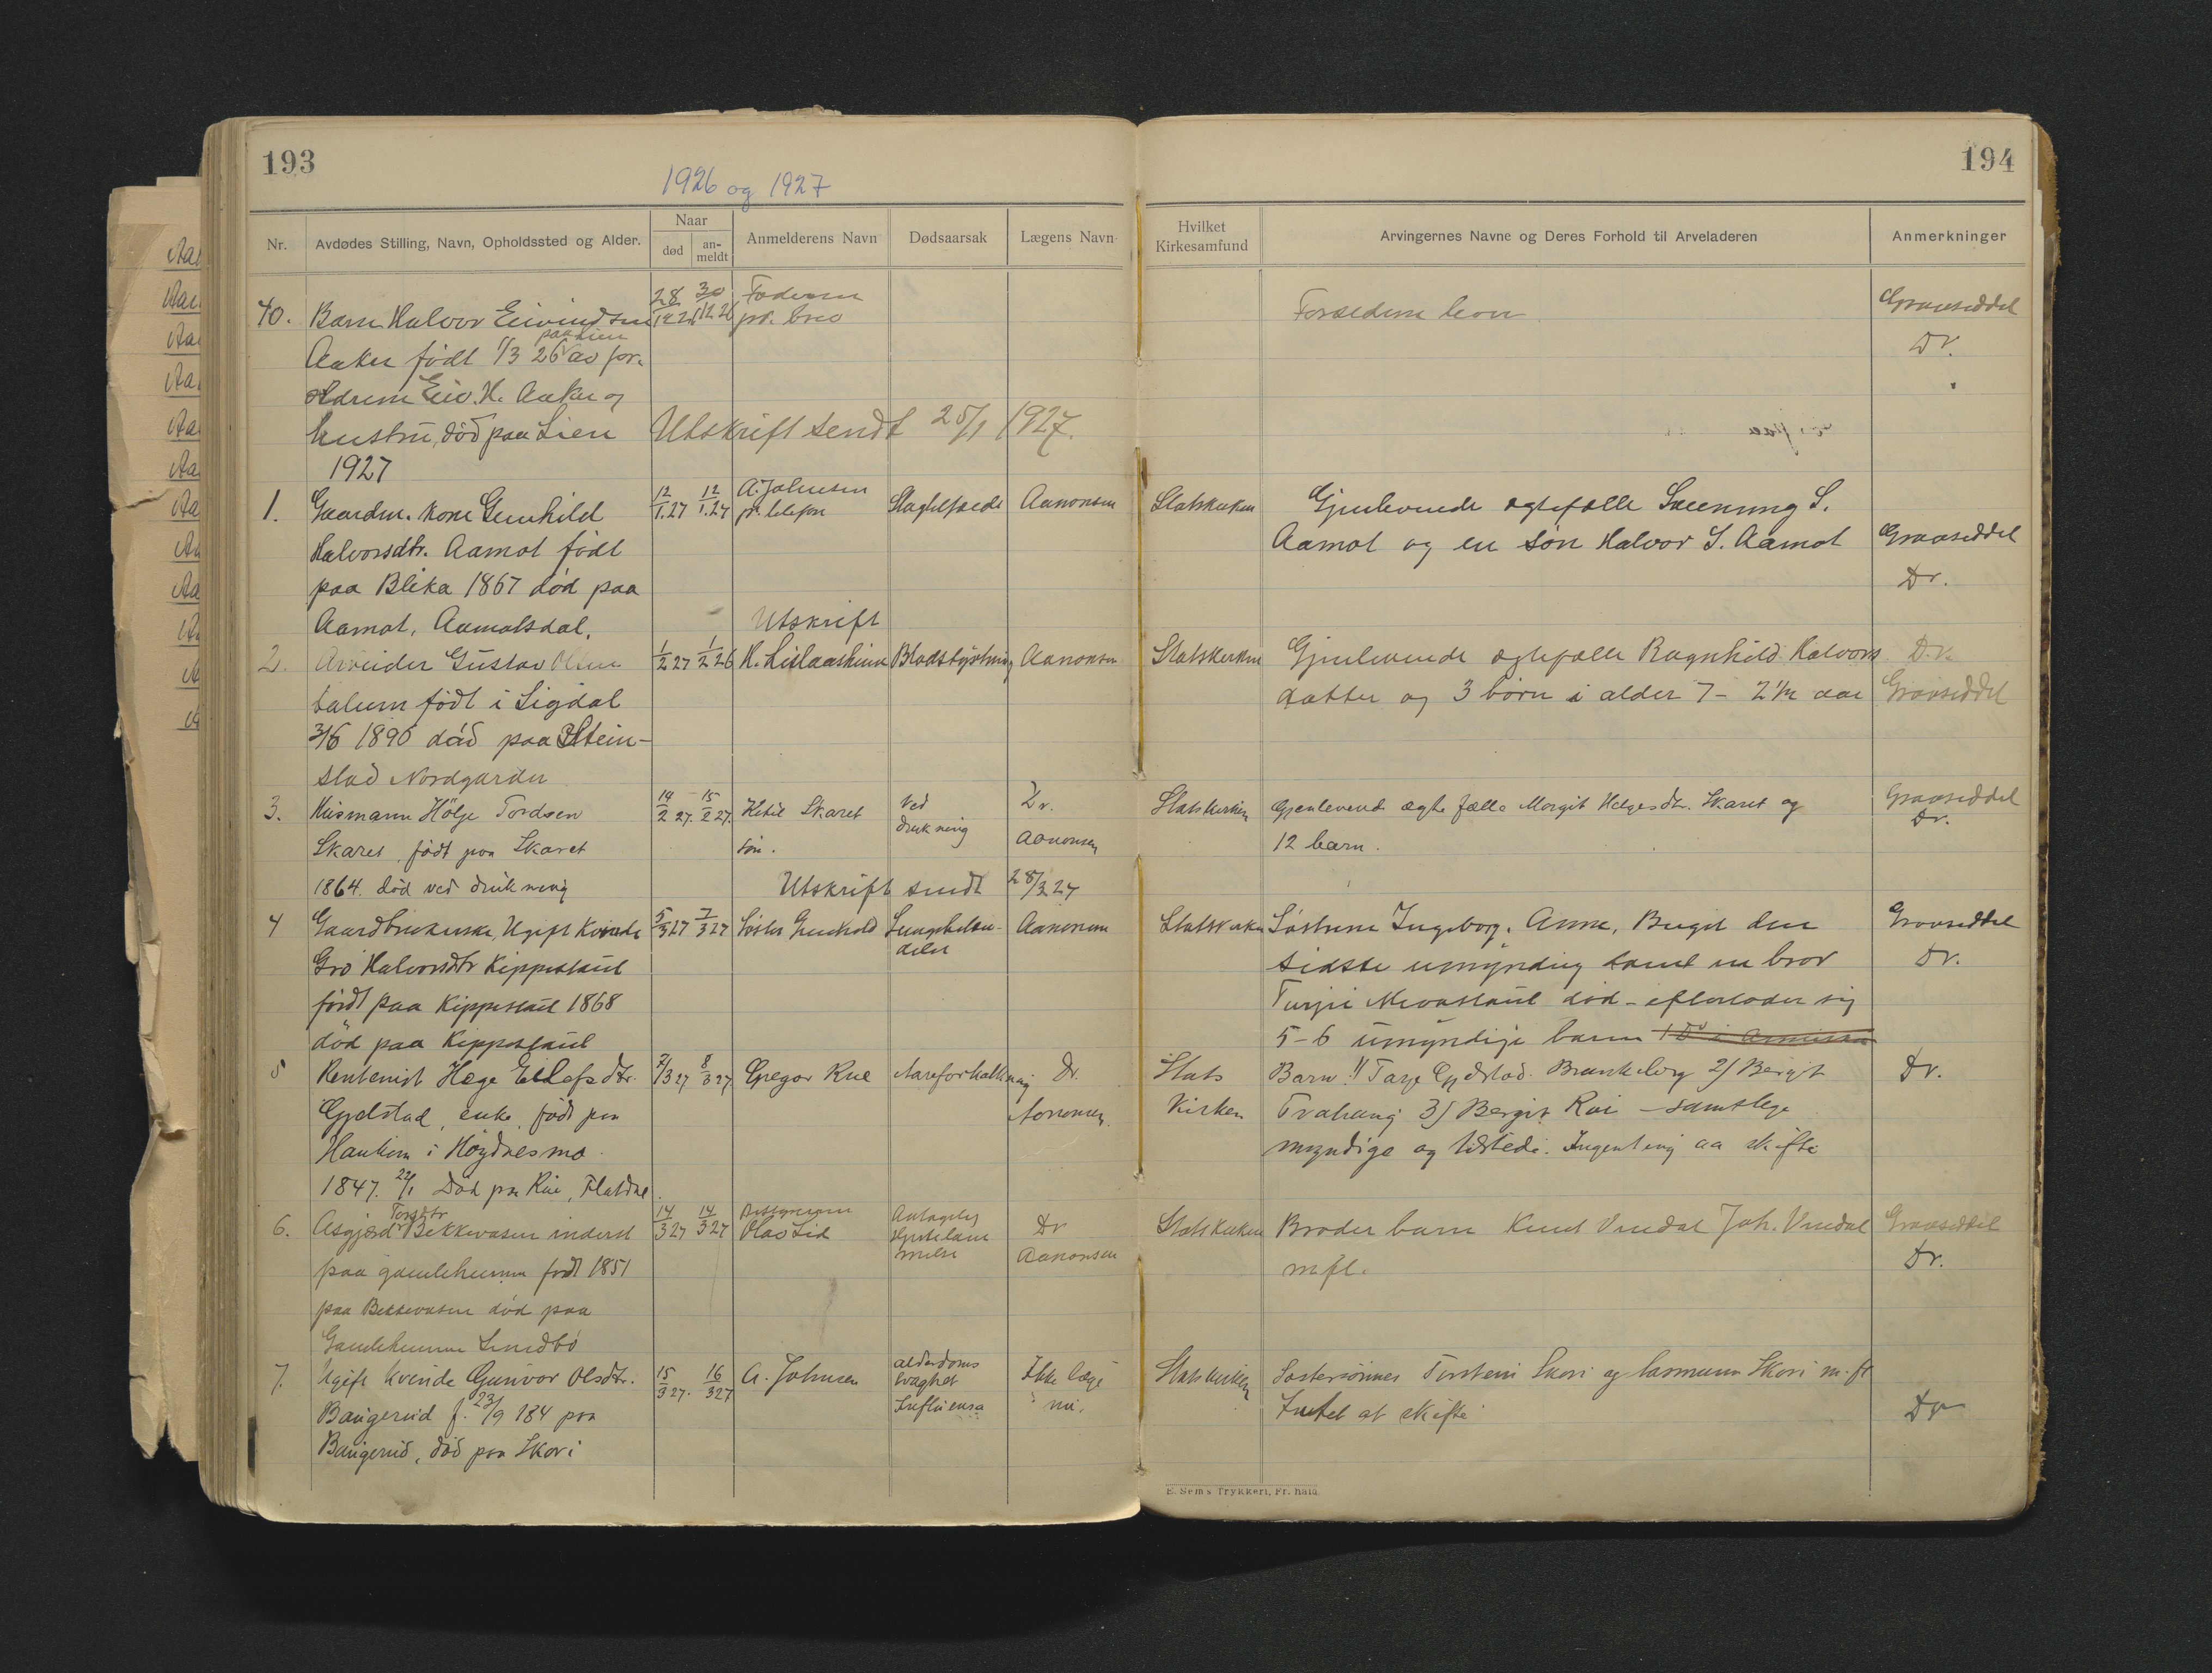 193
194
1926 og 1927
Nr.
Avdødes Stilling, Navn, Opholdssted og Alder.
Naar
død
an-
meldt
Anmelderens Navn
Dødsaarsak
Lægens Navn
Hvilket
Kirkesamfund
Arvingernes Navne og Deres Forhold til Arveladeren
Anmerkninger
40. Barn Halvor Eivindsen 28/12 26 30/12 26 Faderen Gravseddel
pr. brev
paa Lien
Aaker født 1/3 26 av for- Dr.
ældrene Eiv. H. Aaker og
hustru, død paa Lien Utskrift sendt 25/1 1927.
1927
1. Gaardm. kone Gunhild 12/1.27 12/1.27 A. Johnsen Slagtilfælde Aanonsen Statskirken Gjenlevende egtefælle S.
pr. telefon
Halvorsdtr. Aamot født Aamot og en søn Halvor S. Aamot Gravseddel
paa Blika 1867 død paa Dr.
Aamot, Aamotsdal. Utskrift
2. Arbeider Gustav Olsen 1/2 27 1/2 26 H. Blodstyrtning Aanonsen Statskirken Gjenlevende egtefælle Ragnhild Halvors Dr.
født i Sigdal datter og 3 børn i alder 7 - 2 1/2 aar Gravseddel
3/6 1890 død paa Stein-
stad Nordgarden
3. Husmann Hölje Tordsen 14/2 27. 15/2 27. Ketil Skaret Ved Dr. Statskirken Gjenlevende ægtefælle Margit Helgesdtr. Skaret og Gravseddel
Dr.
Skaret, født paa Skaret søn. drukning Aanonsen 12 barn.
1864. død ved drukning Utskrift sendt 28/3 27
4 Gaardbrukerske, Ugift Kvinde 5/3 27 7/3 27 Søster Gunhild Aanonsen Statskirken Søstrene Ingeborg, Anne, Birgit den Gravseddel
Gro Halvorsdtr Kippestaul sidste umyndig samt en bror Dr.
født paa Kippestaul 1868 død - efterlader sig
død paa Kippestaul 5-6 umyndige barn
5 Rentenist Hæge Eilefsdtr. 7/3 27 8/3 27 Gregar Rue Aareforkalkning Dr. Stats Barn: 1/ Tarje Gjelstad Brunkeberg 2/ Bergit Dr.
Gjelstad, enke, født paa Aanonsen. Kirken 3/ Bergit Rui - samtlege
i Høydnesmo. myndige og tilstede. Ingenting aa skifte
1847. 22/1 Død paa Rui, Flatdal.
6. Asgjerd Torsdtr Bekkevasen inderst 14/3 27 14/3 27 Bestyreren Dr Statskirken Broder barn Knut Vindal Joh. Vindal Gravseddel
Olav Lid
paa gamlehemen født 1851 Aanonsen m.fl. Dr.
paa Bekkevasen død paa
Gamlehemen Sundbø
7. Ugift kvinde Gunvor Olsdtr. 15/3 27. 16/3 27 A. Johnsen alderdoms Ikke læge Statskirken Søstersønnes Torstein Skori og Skori m.fl
svaghet
Baugerud f. 23/9 184 paa Influensa Intet at skifte Dr
Baugerud, død paa Skori
E. Sem's Trykkeri, Fr.hald.